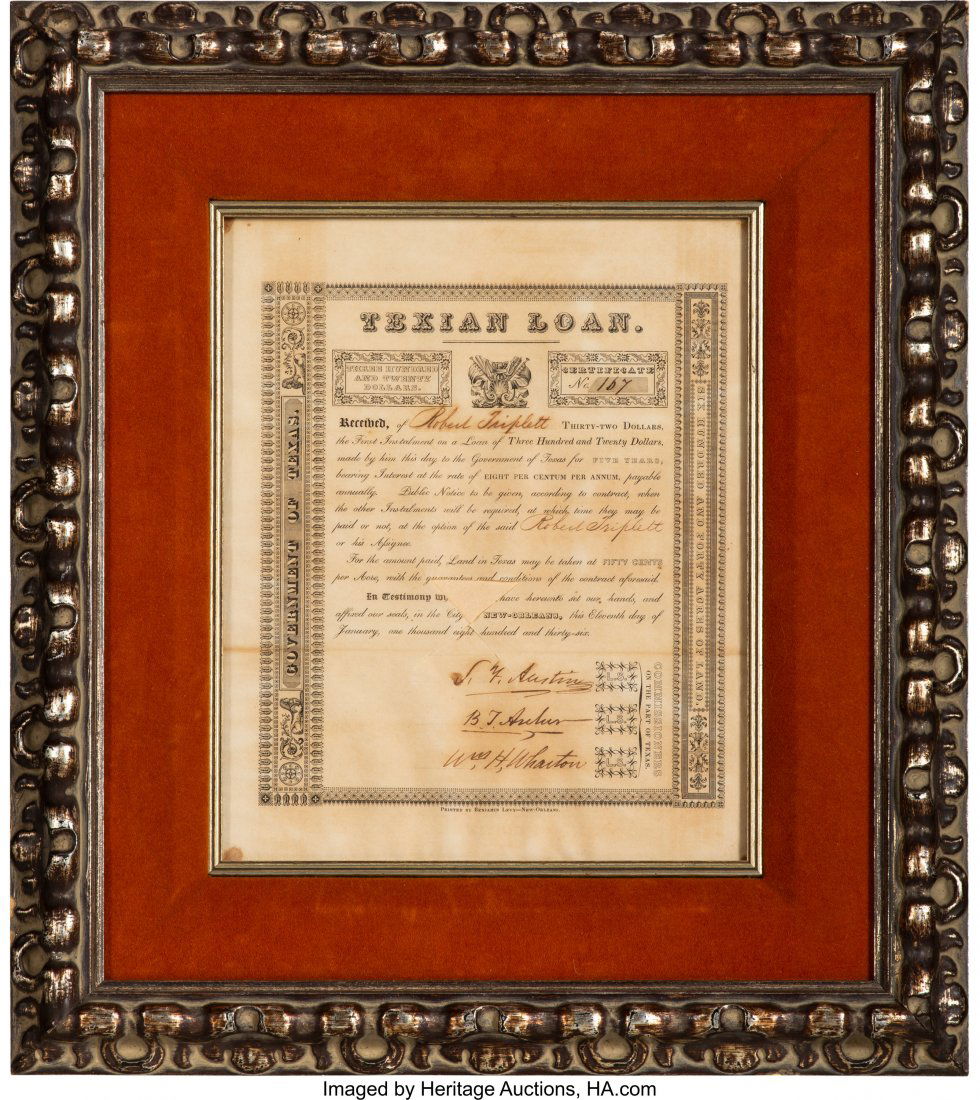 TEXIAN LOAN.
THREE HUNDRED
AND TWENTY
DOLLARS.
CERTIFICATE
No. 167
Received, of Robert Triplett THIRTY-TWO DOLLARS,
the First Instalment on a Loan of Three Hundred and Twenty Dollars,
made by him this day to the Government of Texas for FIVE YEARS,
bearing Interest at the rate of EIGHT PER CENTUM PER ANNUM, payable
annually. Public Notice to be given, according to contract, when
the other Instalments will be required, at which time they may be
paid or not, at the option of the said Robert Triplett
or his Assignee.
For the amount paid, Land in Texas may be taken at FIFTY CENTS
per Acre, with the guarantees and conditions of the contract aforesaid.
In Testimony have hereunto set our hands, and
affixed our seals, in the City NEW-ORLEANS, this Eleventh day of
January, one thousand eight hundred and thirty-six.
S. F. Austin L.S.
B. T. Archer L.S.
Wm. H. Wharton L.S.
COMMISSIONERS
ON THE PART OF TEXAS.
GOVERNMENT OF TEXAS.
SIX HUNDRED AND FORTY ACRES OF LAND.
PRINTED BY BENJAMIN LEVY—NEW-ORLEANS.
Imaged by Heritage Auctions, HA.com